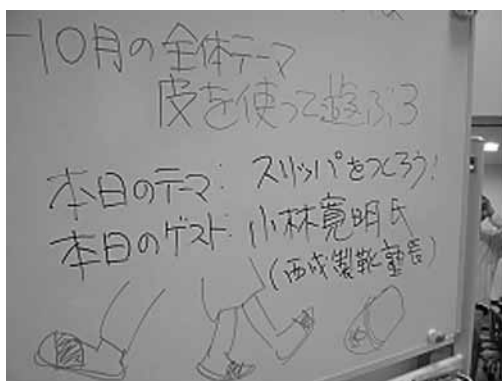 10月の全体テーマ
皮を使って遊ぶ3
本日のテーマ: スリッパをつくろう!
本日のゲスト: 小林寛明氏
(西成製靴塾長)